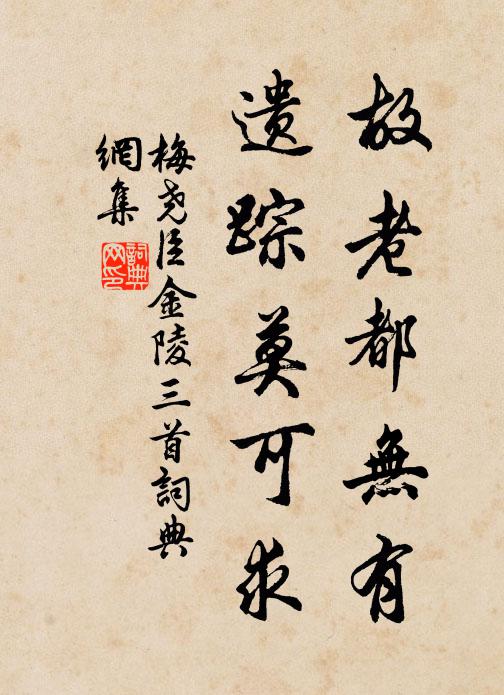 故老都無有
遗踪莫可求
梅尧臣金陵三首詞典
網集
詞典
网印